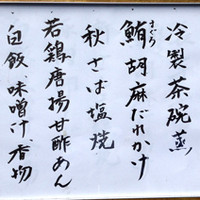 冷製茶碗蒸
鮪胡麻だれかけ
まぐろ
秋さば塩焼
若鶏唐揚甘酢あん
白飯、味噌汁、香物